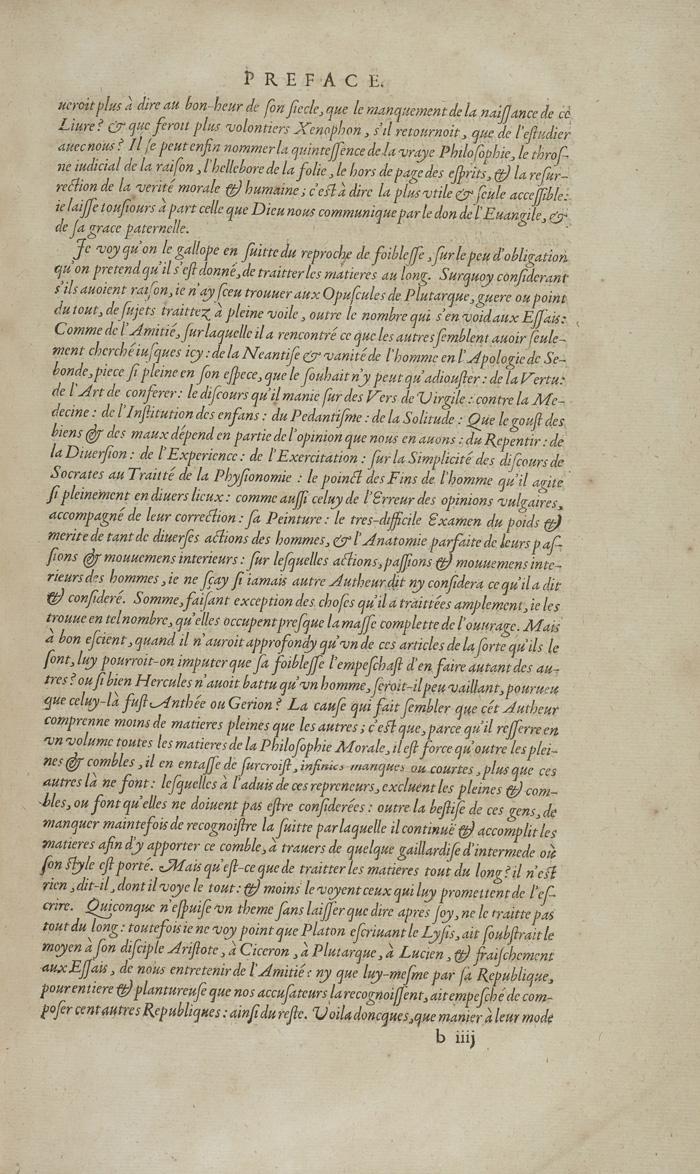 PREFACE.
ueroit plus à dire au bon-heur de ſon ſiecle, que le manquement de la naiſſance de ce
Liure? & que feroit plus volontiers Xenophon, s'il retournoit, que de l'eſtudier
auec nous? Il ſe peut enfin nommer la quinteſſence de la vraye Philoſophie, le throſ-
ne iudicial de la raiſon, l'hellebore de la folie, le hors de page des eſprits, & la reſur-
rection de la verité morale & humaine; c'eſt à dire la plus vtile & ſeule acceſſible:
ie laiſſe touſiours à part celle que Dieu nous communique par le don de l'Euangile, &
de ſa grace paternelle.
Je voy qu'on le gallope en ſuitte du reproche de foibleſſe, ſur le peu d'obligation
qu'on pretend qu'il s'eſt donné, de traitter les matieres au long. Surquoy conſiderant
s'ils auoient raiſon, ie n'ay ſceu trouuer aux Opuſcules de Plutarque, guere ou point
du tout, de ſujets traittez à pleine voile, outre le nombre qui s'en void aux Eſſais:
Comme de l'Amitié, ſur laquelle il a rencontré ce que les autres ſemblent auoir ſeule-
ment cherché iuſques icy: de la Neantiſe & vanité de l'homme en l'Apologie de Se-
bonde, piece ſi pleine en ſon eſpece, que le ſouhait n'y peut qu'adiouſter: de la Vertu:
de l'Art de conferer: le diſcours qu'il manie ſur des Vers de Virgile: contre la Me-
decine: de l'Inſtitution des enfans: du Pedantiſme: de la Solitude: Que le gouſt des
biens & des maux dépend en partie de l'opinion que nous en auons: du Repentir: de
la Diuerſion: de l'Experience: de l'Exercitation: ſur la Simplicité des diſcours de
Socrates au Traitté de la Phyſionomie: le poinct des Fins de l'homme qu'il agite
ſi pleinement en diuers lieux: comme auſſi celuy de l'Erreur des opinions vulgaires,
accompagné de leur correction: ſa Peinture: le tres-difficile Examen du poids &
merite de tant de diuerſes actions des hommes, & l'Anatomie parfaite de leurs paſ-
ſions & mouuemens interieurs: ſur leſquelles actions, paſſions & mouuemens inte-
rieurs des hommes, ie ne ſçay ſi iamais autre Autheur dit ny conſidera ce qu'il a dit
& conſideré. Somme, faiſant exception des choſes qu'il a traittées amplement, ie les
trouue en tel nombre, qu'elles occupent preſque la maſſe complette de l'ouurage. Mais
à bon eſcient, quand il n'auroit approfondy qu'vn de ces articles de la ſorte qu'ils le
ſont, luy pourroit-on imputer que ſa foibleſſe l'empeſchaſt d'en faire autant des au-
tres? ou ſi bien Hercules n'auoit battu qu'vn homme, ſeroit-il peu vaillant, pourueu
que celuy-là fuſt Anthée ou Gerion? La cauſe qui fait ſembler que cét Autheur
comprenne moins de matieres pleines que les autres; c'eſt que, parce qu'il reſſerre en
vn volume toutes les matieres de la Philoſophie Morale, il eſt force qu'outre les plei-
nes & combles, il en entaſſe de ſurcroiſt, infinies manques ou courtes, plus que ces
autres là ne font: leſquelles à l'aduis de ces repreneurs, excluent les pleines & com-
bles, ou font qu'elles ne doiuent pas eſtre conſiderées: outre la beſtiſe de ces gens, de
manquer maintefois de recognoiſtre la ſuitte par laquelle il continuë & accomplit les
matieres afin d'y apporter ce comble, à trauers de quelque gaillardiſe d'intermede où
ſon ſtyle eſt porté. Mais qu'eſt-ce que de traitter les matieres tout du long? il n'eſt
rien, dit-il, dont il voye le tout: & moins le voyent ceux qui luy promettent de l'eſ-
crire. Quiconque n'eſpuiſe vn theme ſans laiſſer que dire apres ſoy, ne le traitte pas
tout du long: toutefois ie ne voy point que Platon eſcriuant le Lyſis, ait ſoubſtrait le
moyen à ſon diſciple Ariſtote, à Ciceron, à Plutarque, à Lucien, & fraiſchement
aux Eſſais, de nous entretenir de l'Amitié: ny que luy-meſme par ſa Republique,
pour entiere & plantureuſe que nos accuſateurs la recognoiſſent, ait empeſché de com-
poſer cent autres Republiques: ainſi du reſte. Voila doncques, que manier à leur mode
b iiij